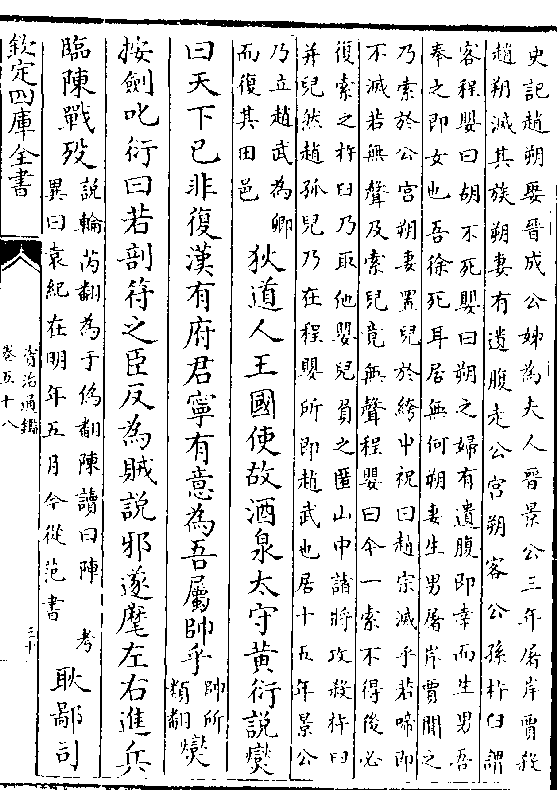 史記趙朔娶晉成公姊為夫人晉景公三年屠岸賈殺
趙朔滅其族朔妻有遺腹走公宮朔客公孫杵臼謂
客程嬰曰胡不死嬰曰朔之婦有遺腹即幸而生男吾
奉之即女也吾徐死耳居無何朔妻生男屠岸賈聞之
乃索於公宮朔妻置兒於絝中祝曰趙宗滅乎若啼即
不滅若無聲及索兒竟無聲程嬰曰今一索不得後必
復索之杵臼乃取他嬰兒負之匿山中諸將攻殺杵臼
并兒然趙孤兒乃在程嬰所即趙武也居十五年景公
乃立趙武為卿
而復其田邑
狄道人王國使故酒泉太守黃衍說燮
曰天下已非復漢有府君寧有意為吾屬帥乎
帥所
類翻
燮
按劍叱衍曰若剖符之臣反為賊說邪遂麾左右進兵
臨陳戰歿
說輸芮翻為于偽翻陳讀曰陣 考
異曰袁紀在明年五月今從范書
耿鄙司
欽定四庫全書
資治通鑑
卷五十八
三十